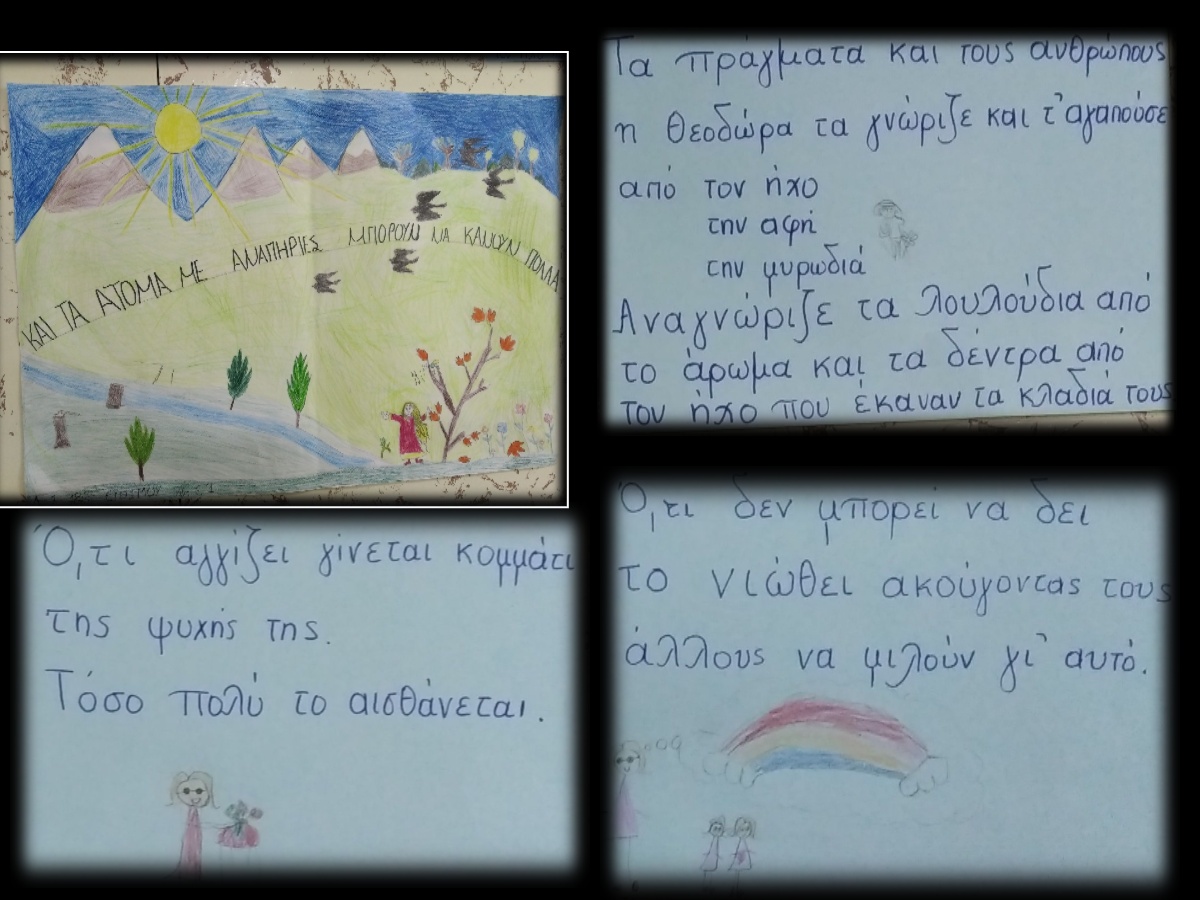 ΚΑΙ ΤΑ ΑΤΟΜΑ ΜΕ ΑΝΑΠΗΡΙΕΣ ΜΠΟΡΟΥΝ ΝΑ ΚΑΝΟΥΝ ΠΟΛΛΑ
Τα πράγματα και τους ανθρώπους
η Θεοδώρα τα γνώριζε και τ' αγαπούσε
από τον ήχο
την αφή
την μυρωδιά
Αναγνώριζε τα λουλούδια από
το άρωμα και τα δέντρα από
τον ήχο που έκαναν τα κλαδιά τους
Ό,τι αγγίζει γίνεται κομμάτι
της ψυχής της.
Τόσο πολύ το αισθάνεται.
Ό,τι δεν μπορεί να δει
το νιώθει ακούγοντας τους
άλλους να μιλούν γι' αυτό.